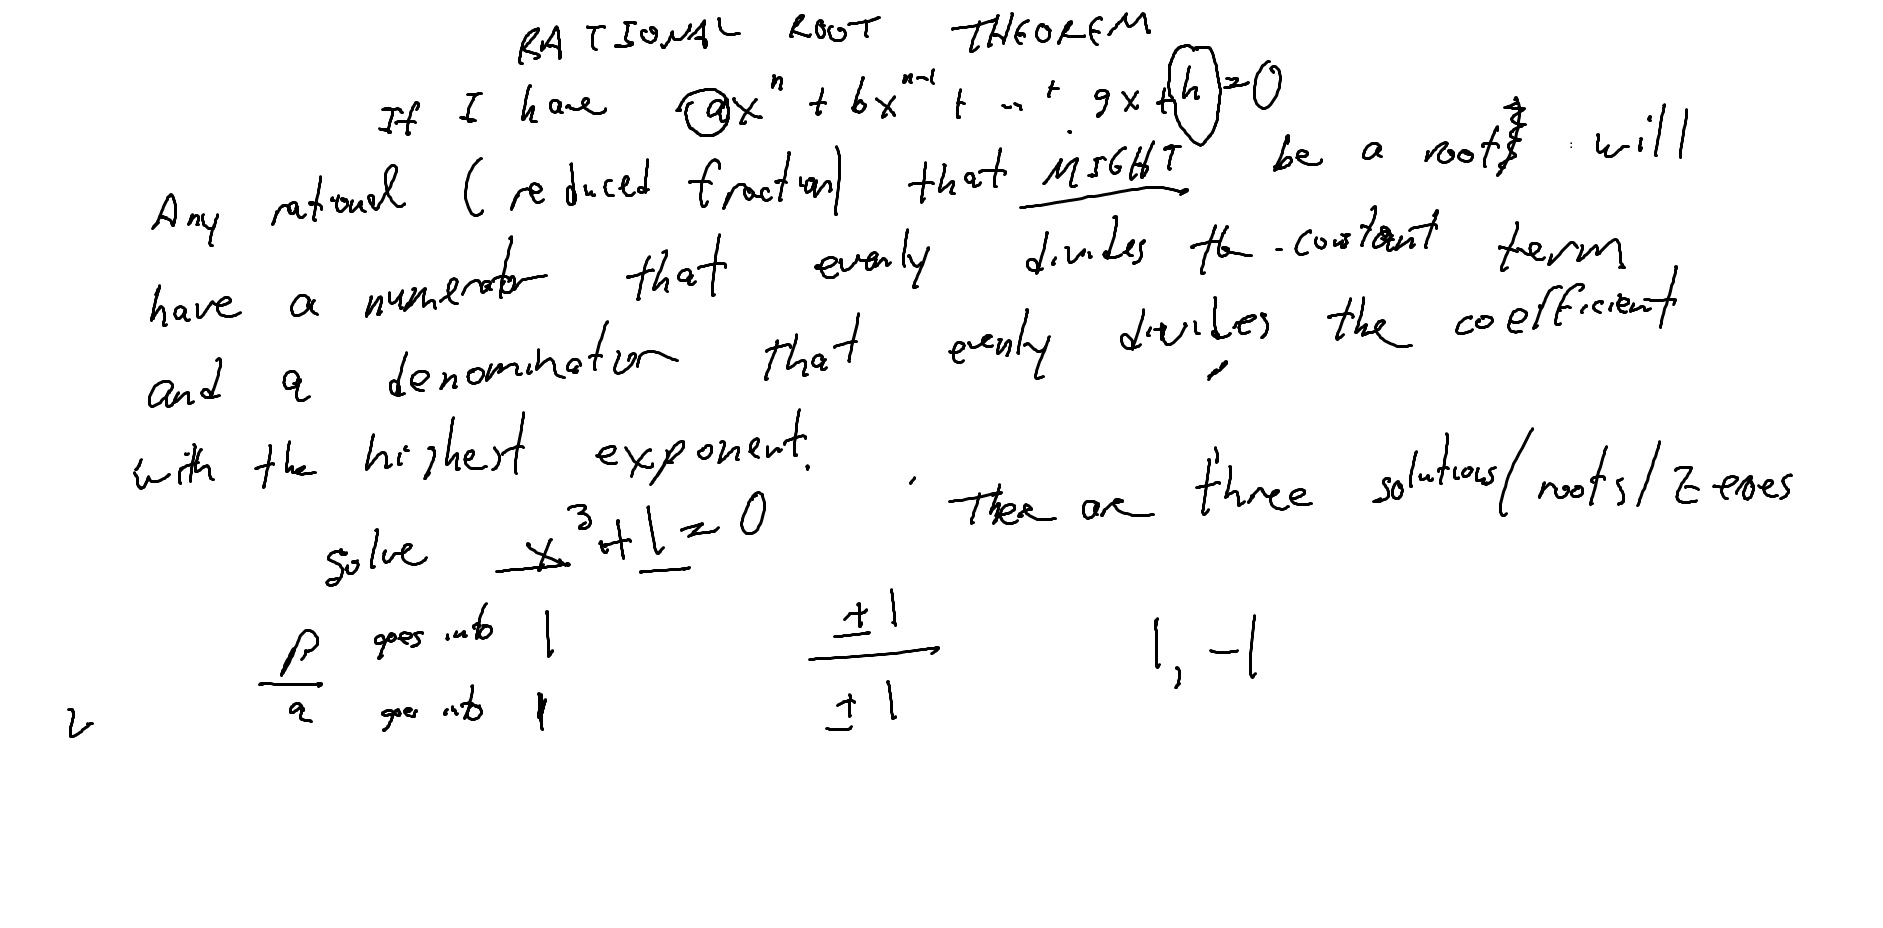 RATIONAL ROOT THEOREM
If I have ax^n + bx^(n-1) + ... + gx + h = 0
Any rational (reduced fraction) that MIGHT be a root will
have a numerator that evenly divides the constant term
and a denominator that evenly divides the coefficient
with the highest exponent.
solve x^3 + 1 = 0 There are three solutions/roots/zeroes
p goes into 1 ±1 1, -1
q goes into 1 ±1